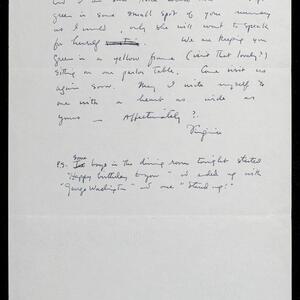 green in some small spot of your memory
as I would, only she will want to speak
for herself. We are keeping you
green in a yellow frame (isn't that lovely?)
sitting on our parlor table. Come visit us
again soon. May I write myself to
one with a heart as wide as
yours — Affectionately?
Virginia
P.S. Some boys in the dining room tonight started
"Happy birthday to you" and ended up with
"George Washington" and one "Stand up!"